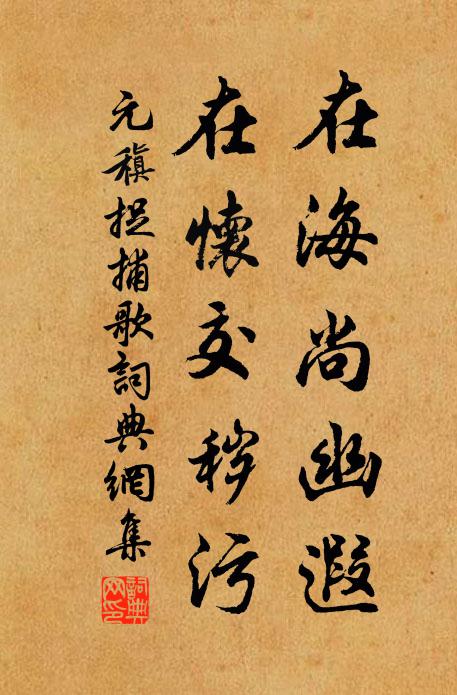 在海尚幽遐
在懷交秽污
元稹捉捕歌詞典網集
詞典网印